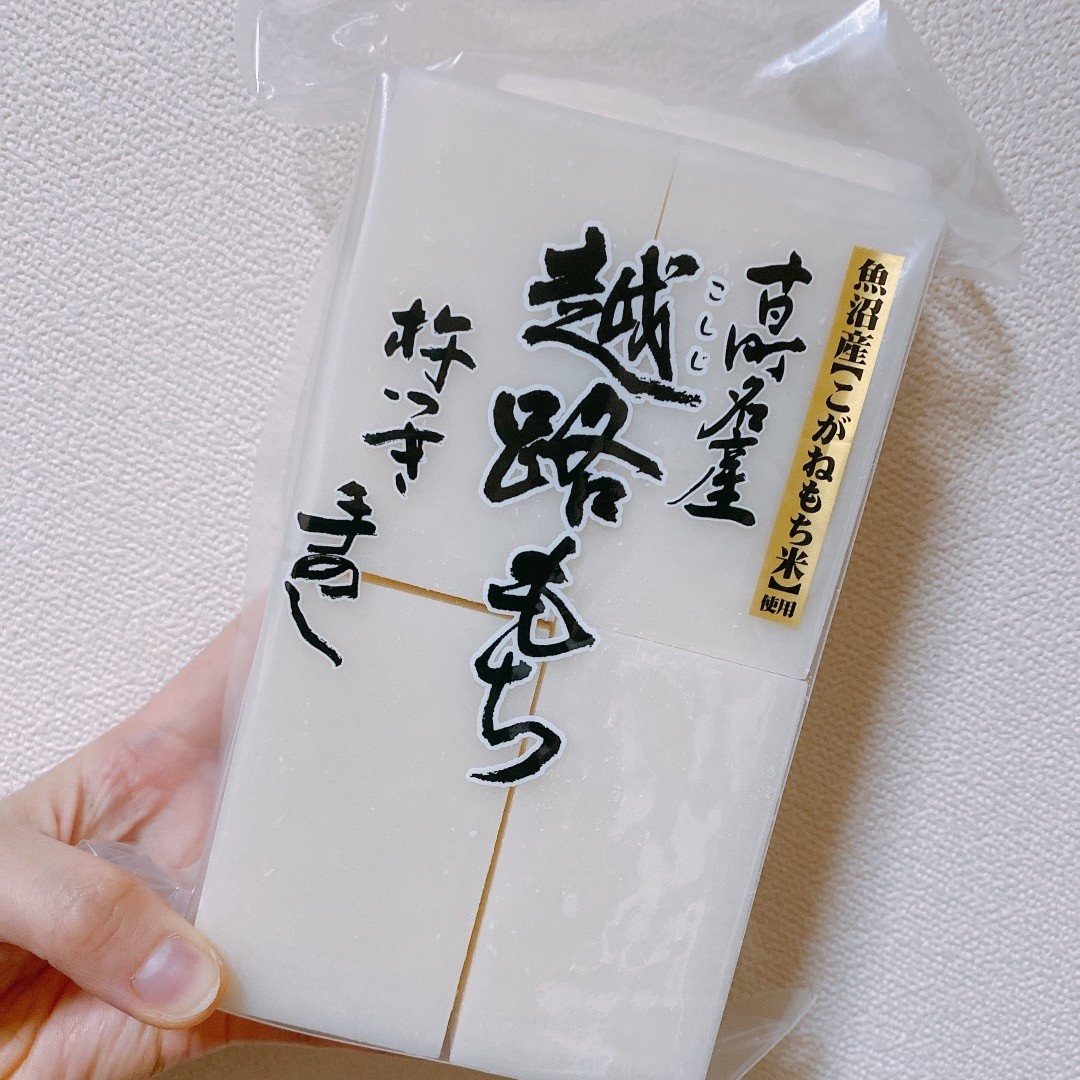 魚沼産【こがねもち米】使用
古町名産
こしじ
越路もち
杵つき
手のし